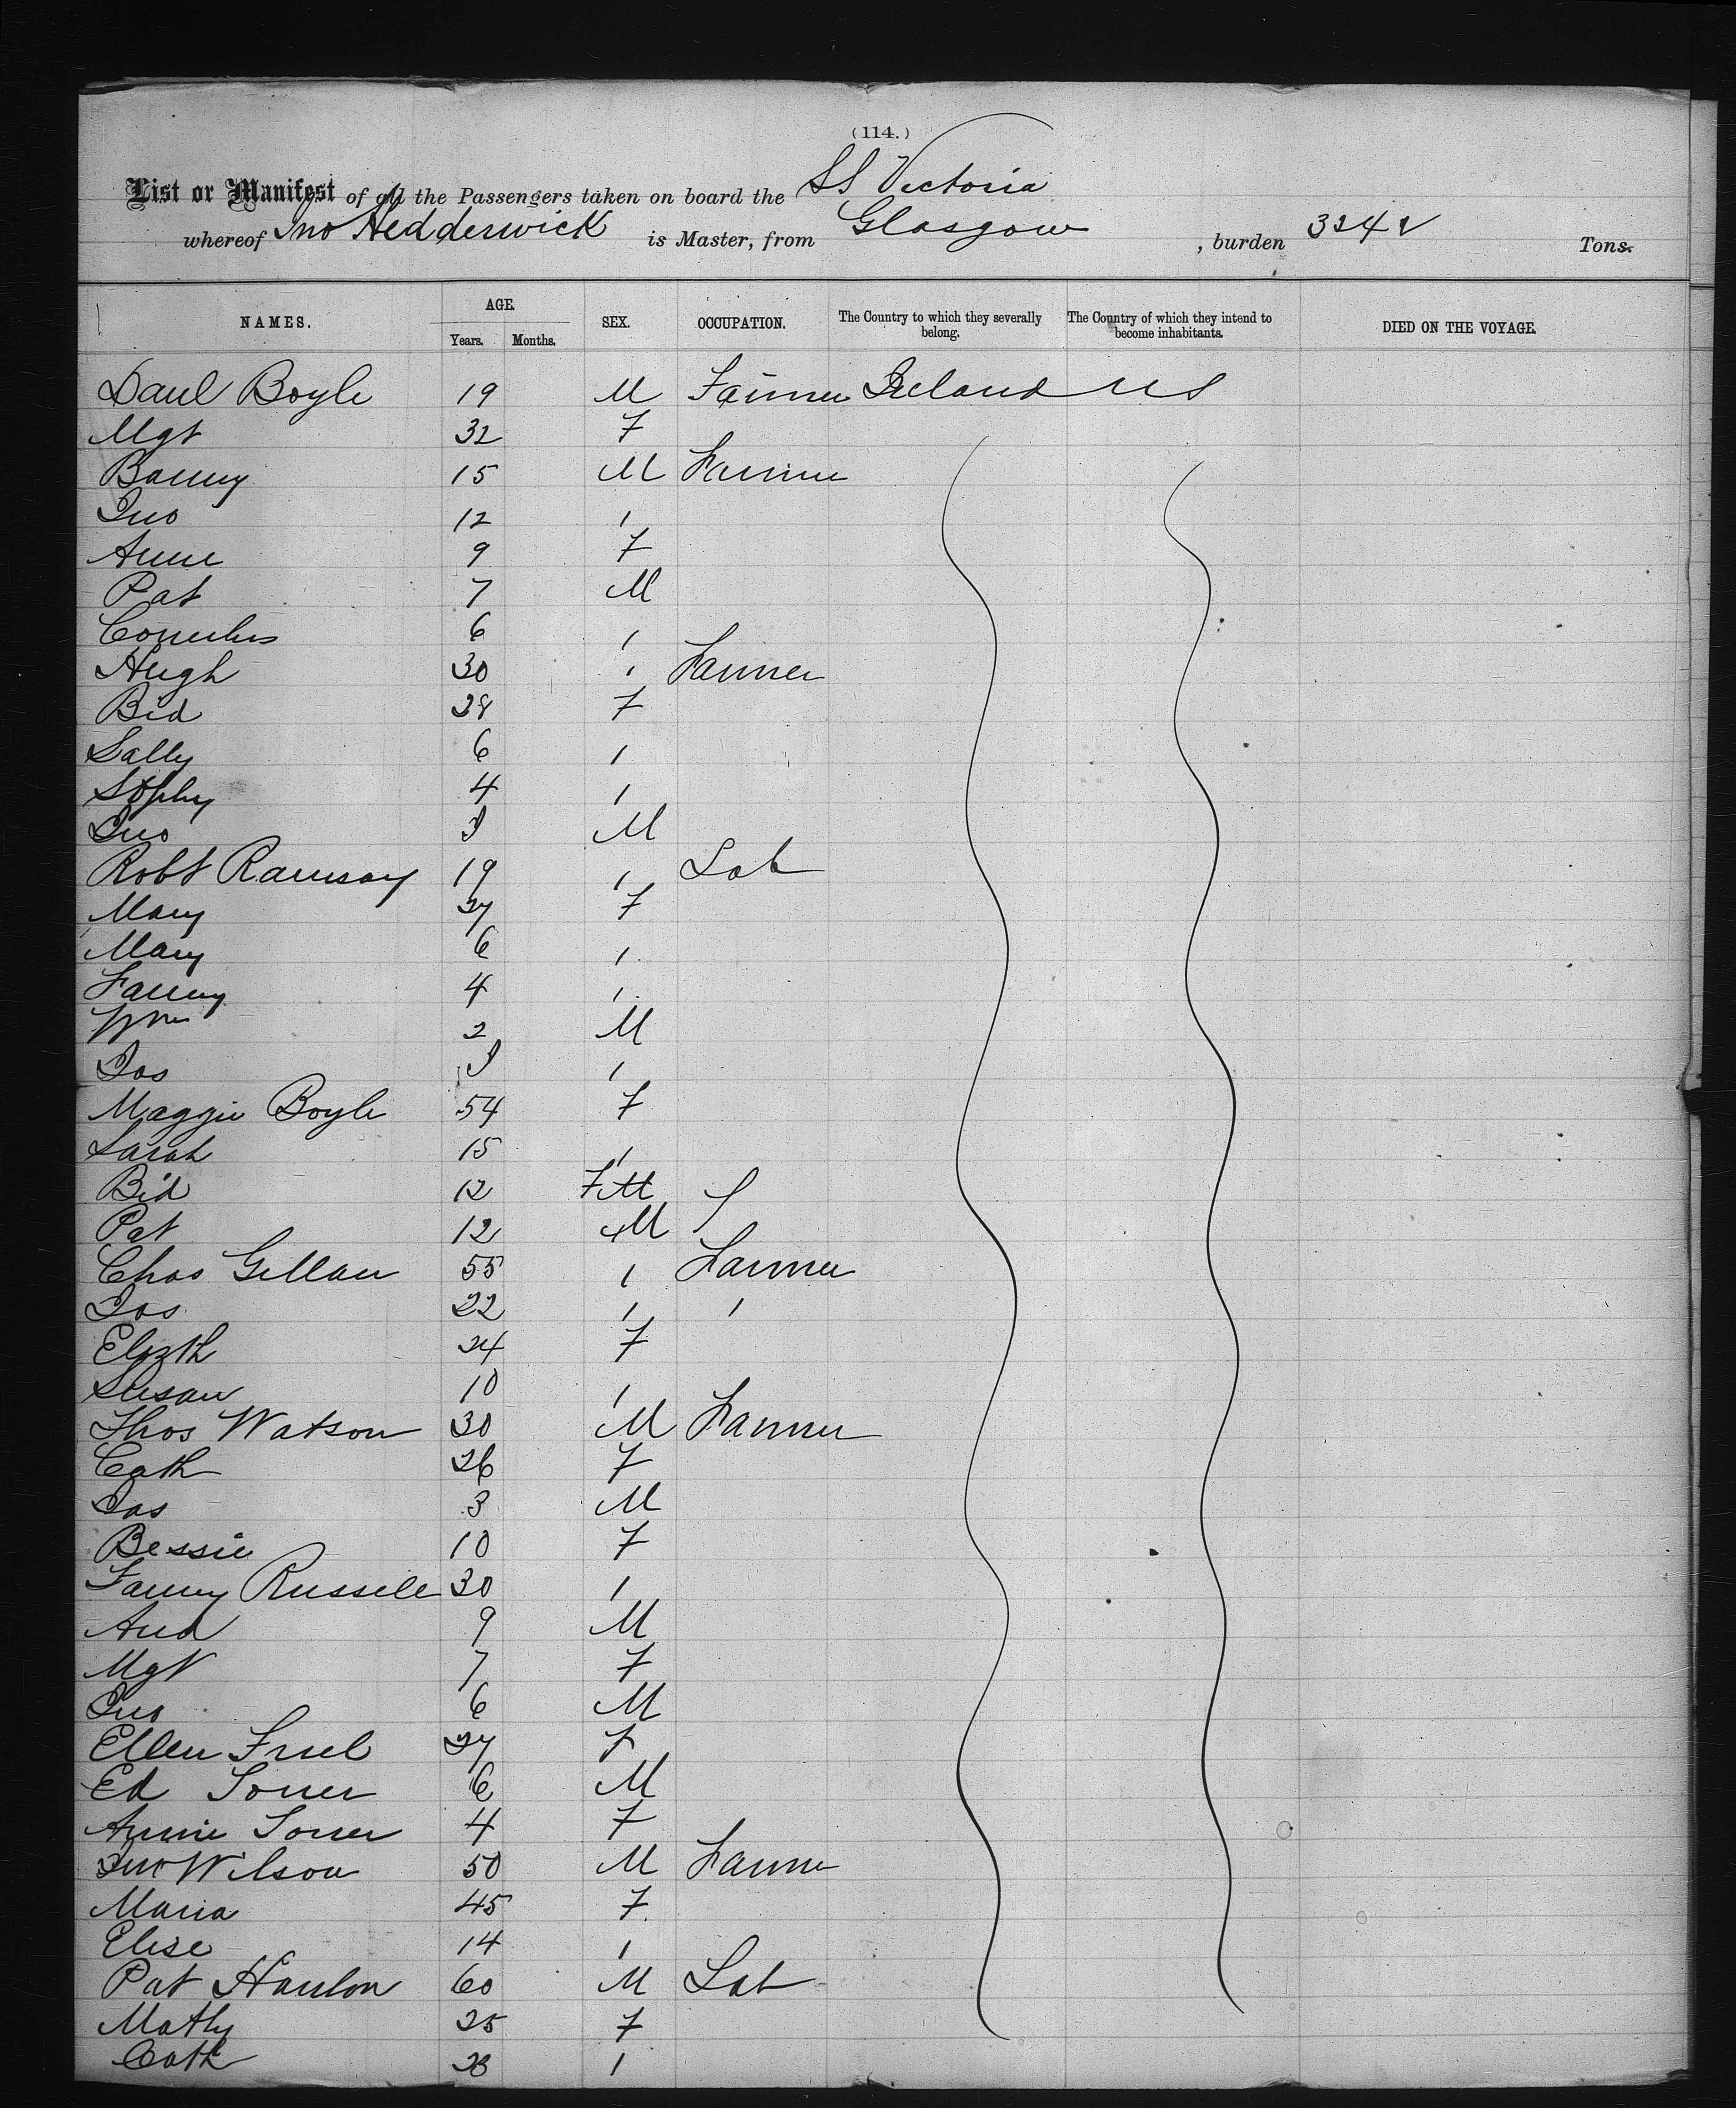 (114.)
List or Manifest of all the Passengers taken on board the SS Victoria
whereof Jno Hedderwick is Master, from Glasgow, burden 3242 Tons.
NAMES. AGE. SEX. OCCUPATION. The Country to which they severally belong. The Country of which they intend to become inhabitants. DIED ON THE VOYAGE.
Years. Months.
Danl Boyle 19 M Farmer Ireland US
Mgt 32 F
Barney 15 M Farmer
Jno 12 "
Anne 9 F
Pat 7 M
Cornelius 6 "
Hugh 30 " Farmer
Bid 28 F
Sally 6 "
Sophy 4 "
Jno M
Robt Ramsay 19 " Lab
Mary 27 F
Mary 6 "
Fanny 4 "
Wm 2 M
Jas "
Maggie Boyle 54 F
Sarah 15 "
Bid 12 F
Pat 12 M
Chas Gillan 55 " Farmer
Jas 22 " "
Elizth 24 F
Susan 10 "
Thos Watson 30 M Farmer
Cath 26 F
Jas 3 M
Bessie 10 F
Fanny Russell 30 "
And 9 M
Mgt 7 F
Jno 6 M
Ellen Friel 27 F
Ed Toner 6 M
Annie Toner 4 F
Jno Wilson 50 M Farmer
Maria 45 F
Elise 14 "
Pat Hanlon 60 M Lab
Matty 25 F
Cath "